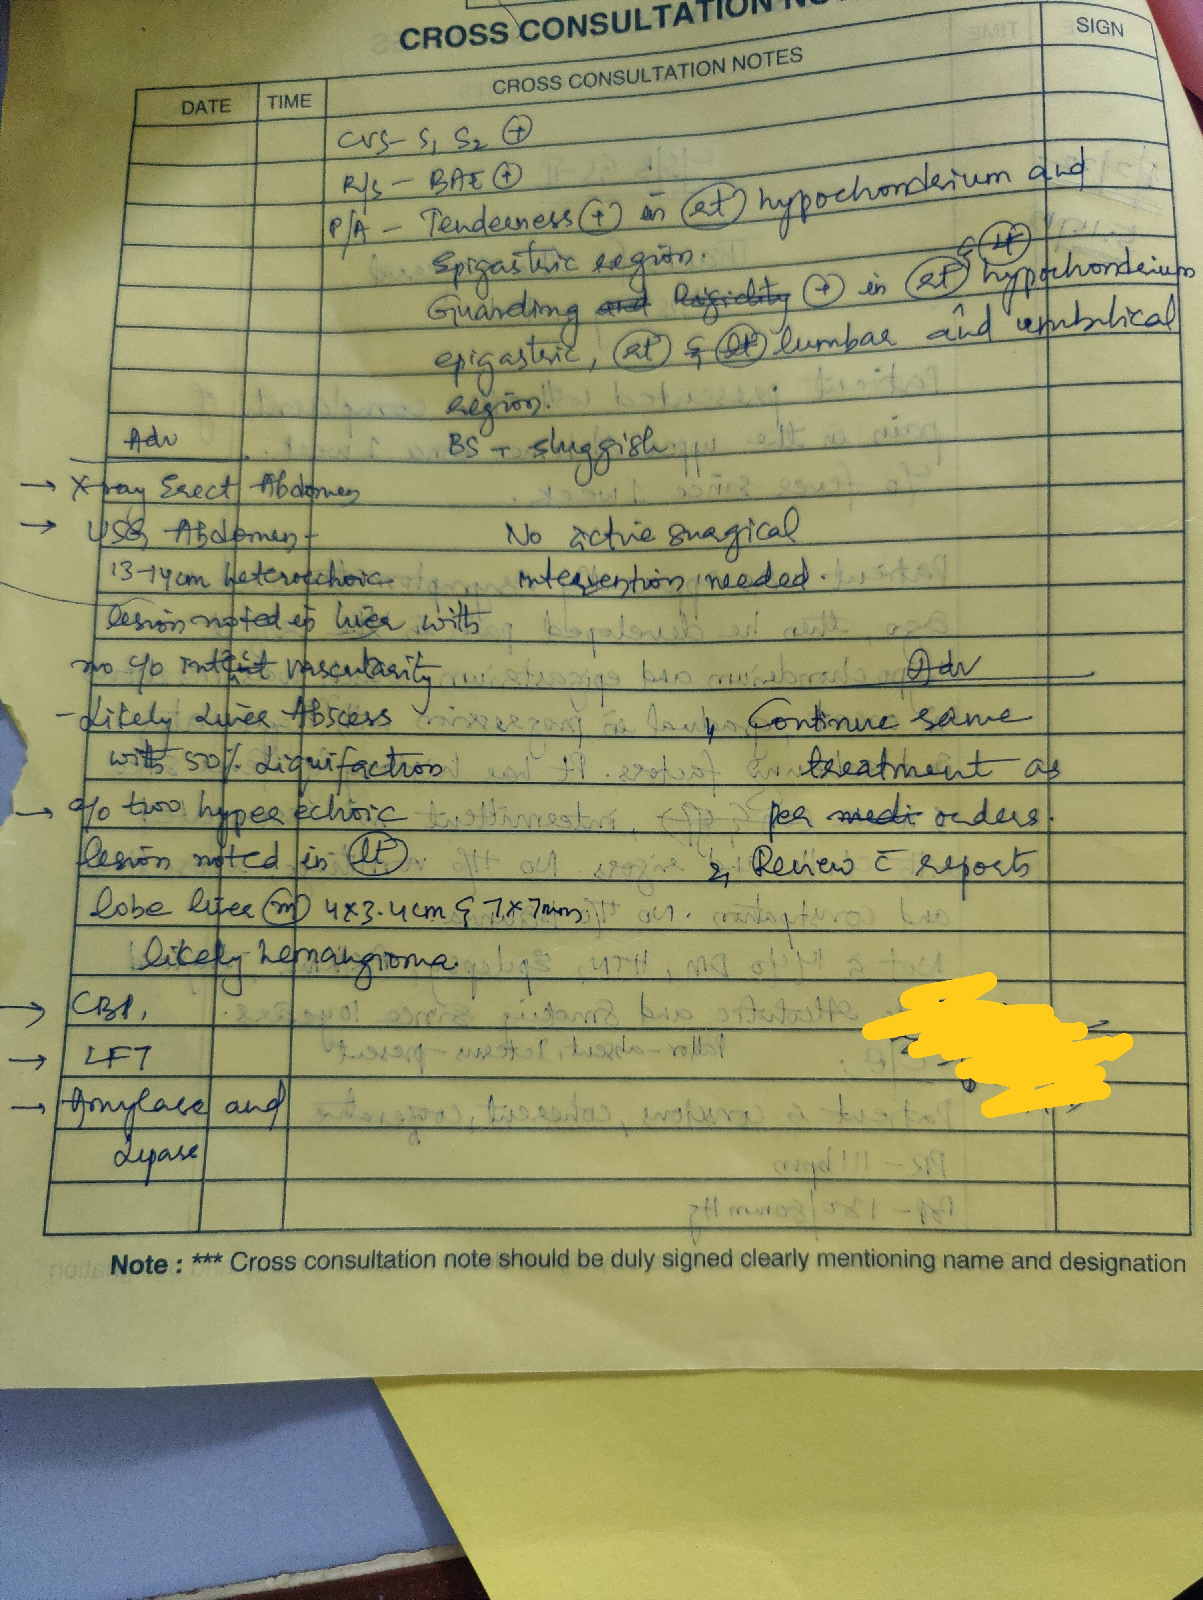 CROSS CONSULTATION
DATE TIME CROSS CONSULTATION NOTES SIGN
CVS- S1 S2 (+)
R/S - BAE (+)
P/A - Tenderness (+) in (rt) hypochondrium and
Epigastric region.
Guarding and Rigidity (+) in (rt) & (lt) hypochondrium
epigastric, (rt) & (lt) lumbar and umbilical
region.
BS - sluggish
No active surgical
intervention needed.
Adv
1, Continue same
treatment as
per medi orders.
2, Review c̄ reports
Adv
→ X-ray Erect Abdomen
→ USG Abdomen -
13-14cm heteroechoic
lesion noted in liver with
no e/o vascularity
- Likely Liver Abscess
with 50% Liquifaction
→ e/o two hyperechoic
lesion noted in (lt)
lobe liver (m) 4x3.4cm & 7x7mm
likely hemangioma.
→ CBP,
→ LFT
→ Amylase and
Lipase
Note : *** Cross consultation note should be duly signed clearly mentioning name and designation